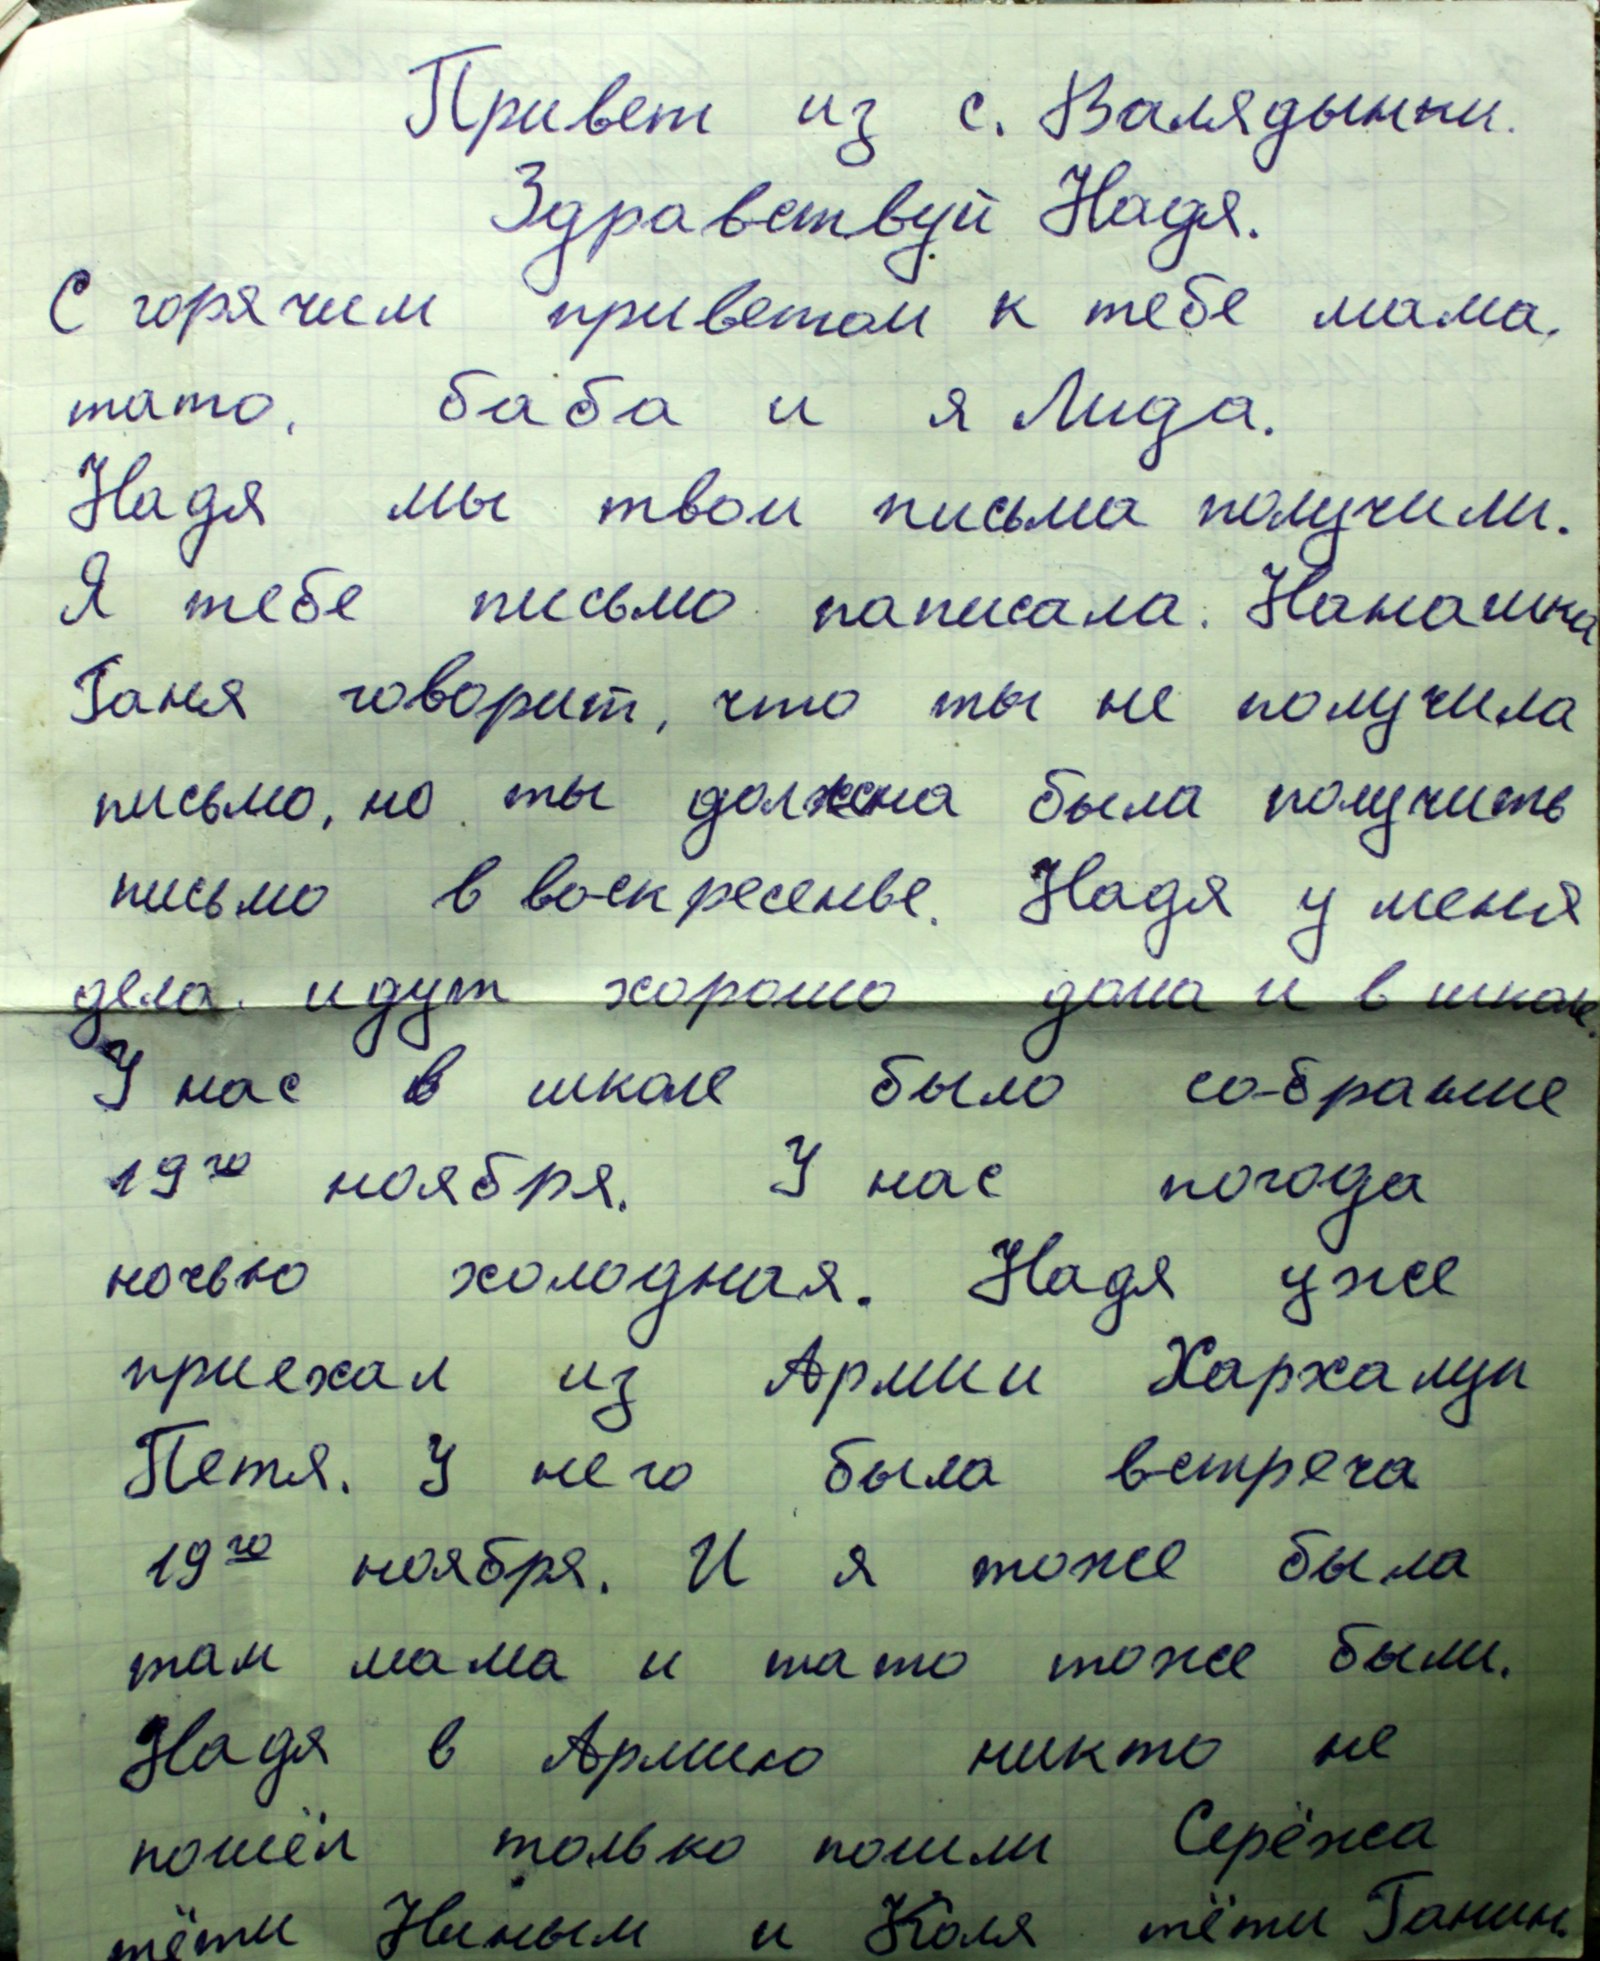 Привет из с. Валядынки.
Здравствуй Надя.
С горячим приветом к тебе мама,
тато, баба и я Лида.
Надя мы твои письма получили.
Я тебе письмо написала. Нанашка
Ганя говорит, что ты не получила
письмо, но ты должна была получить
письмо в воскресенье. Надя у меня
дела идут хорошо дома и в школе.
У нас в школе было собрание
19го ноября. У нас погода
ночью холодная. Надя уже
приехал из Армии Хархалуп
Петя. У него была встреча
19го ноября. И я тоже была
там мама и тато тоже были.
Надя в Армию никто не
пошёл только пошли Серёжа
тёти Ниным и Коля тёти Ганин.